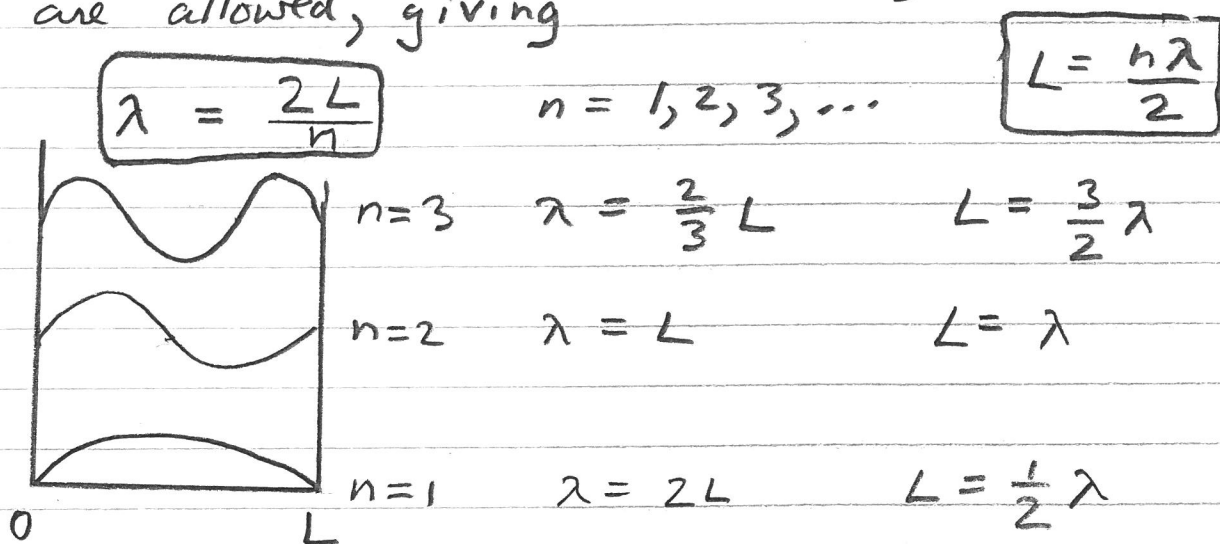 are allowed, giving
λ = 2L/n n = 1, 2, 3, ... L = nλ/2
n=3 λ = 2/3 L L = 3/2 λ
n=2 λ = L L = λ
n=1 λ = 2L L = 1/2 λ
0 L